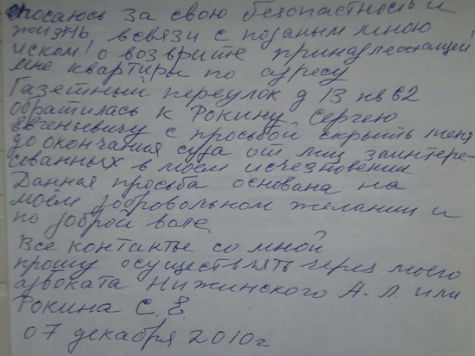 опосаюсь за свою безопастность и
жизнь в связи с поданым мною
иском о возврите принадлежащей
мне квартиры по адресу
Газетный переулок д 13 кв 62
обратилась к Рокину Сергею
Евгеньевичу с просьбой скрыть меня
до окончания суда от лиц заинтере-
сованных в моем исчезновении
Данная просьба основана на
моем добровольном желании и
по доброй воле.
Все контакты со мной
прошу осуществлять через моего
адвоката Нижинского А. Л. или
Рокина С. Е.
07 декабря 2010г